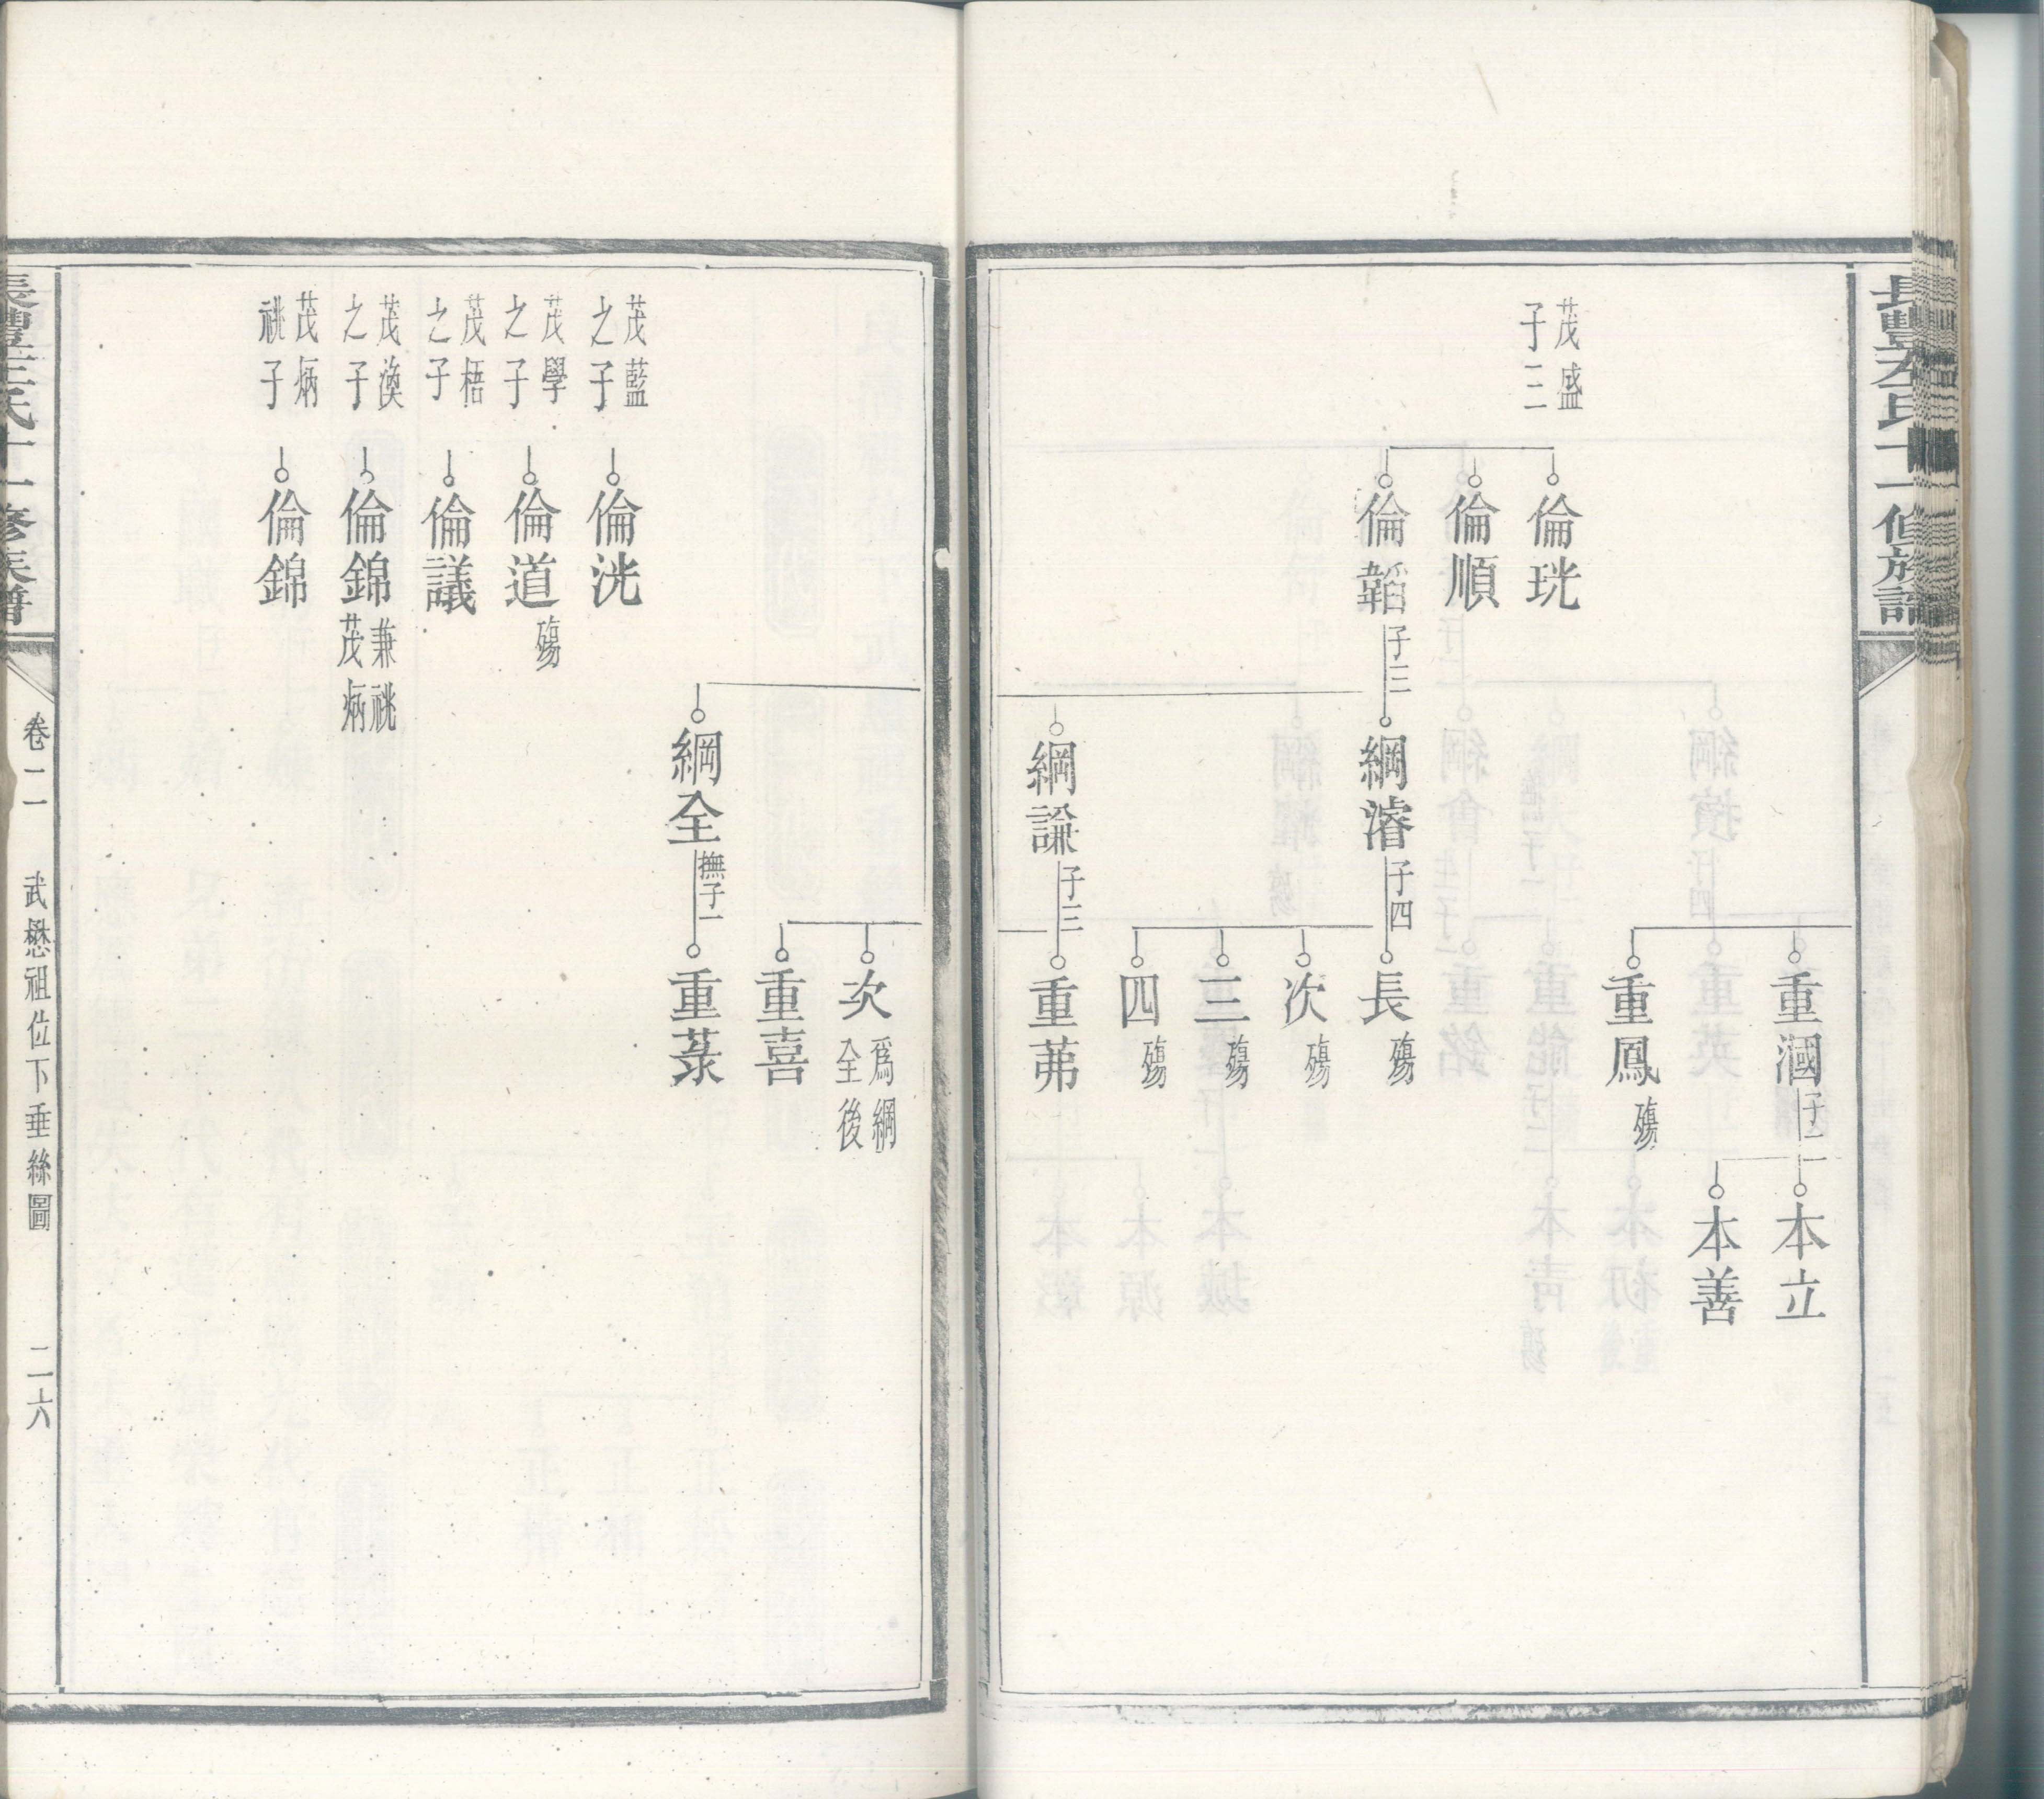 長豐左氏十一修族譜
重漍 子二
本立
本善
重鳳 殤
茂盛
子三
倫珖
倫順
倫韜 子三
綱濬 子四
長 殤
次 殤
三 殤
四 殤
綱謙 子三
重茀
次 爲綱
全後
重喜
綱全 撫子一
重菉
茂藍
之子
倫洸
茂學
之子
倫道 殤
茂梧
之子
倫議
茂渙
之子
倫錦 兼祧
茂炳
茂炳
祧子
倫錦
卷二一 武懋祖位下垂絲圖 二六